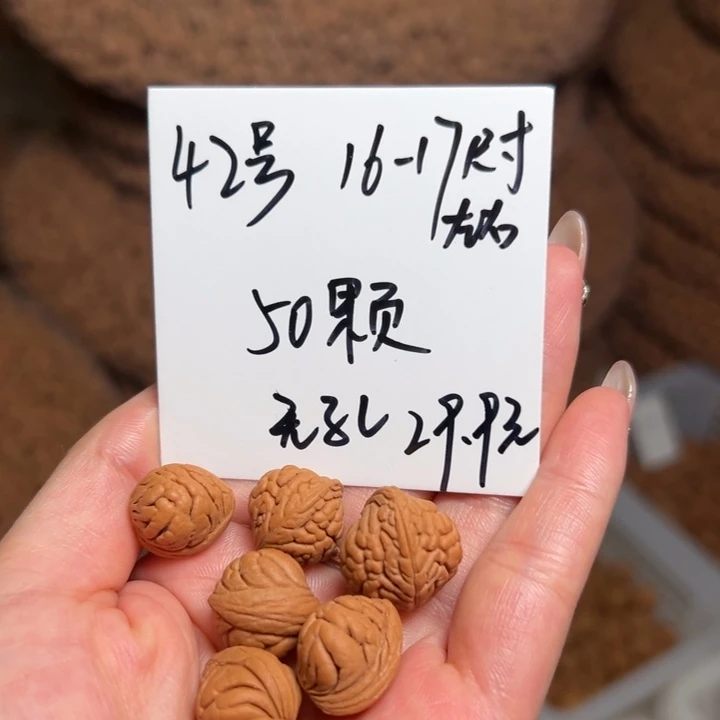 42号 16-17尺寸
左右
50颗
无孔 29.9元